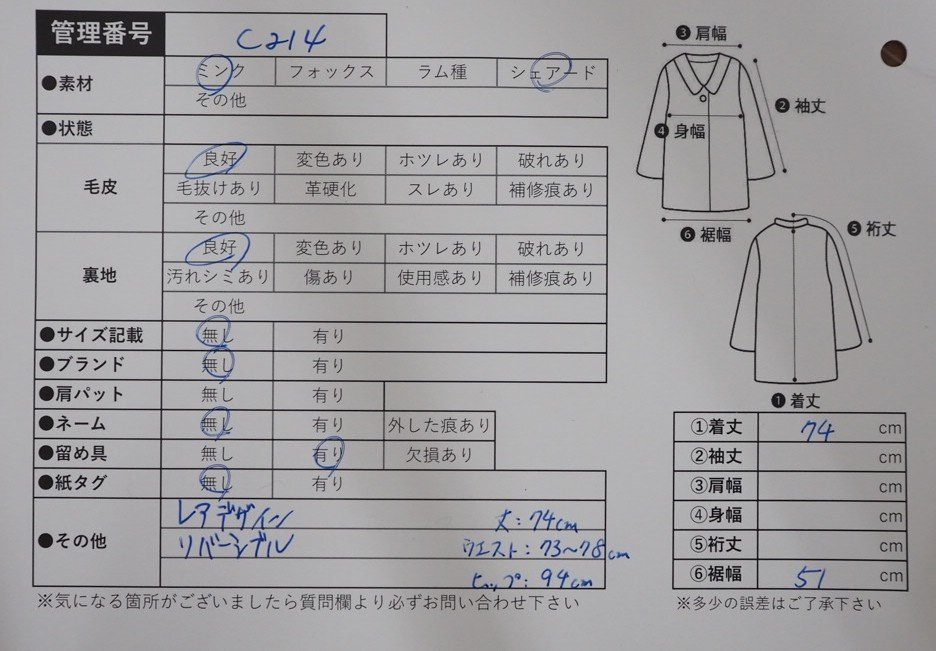 管理番号 C214
●素材 ミンク フォックス ラム種 シェアード
その他
●状態
毛皮 良好 変色あり ホツレあり 破れあり
毛抜けあり 革硬化 スレあり 補修痕あり
その他
裏地 良好 変色あり ホツレあり 破れあり
汚れシミあり 傷あり 使用感あり 補修痕あり
その他
●サイズ記載 無し 有り
●ブランド 無し 有り
●肩パット 無し 有り
●ネーム 無し 有り 外した痕あり
●留め具 無し 有り 欠損あり
●紙タグ 無し 有り
●その他
レアデザイン 丈:74cm
リバーシブル ウエスト:73~78cm
ヒップ:94cm
※気になる箇所がございましたら質問欄より必ずお問い合わせ下さい
❸肩幅
❷袖丈
❹身幅
❻裾幅
❺裄丈
❶着丈
①着丈 74 cm
②袖丈 cm
③肩幅 cm
④身幅 cm
⑤裄丈 cm
⑥裾幅 51 cm
※多少の誤差はご了承下さい